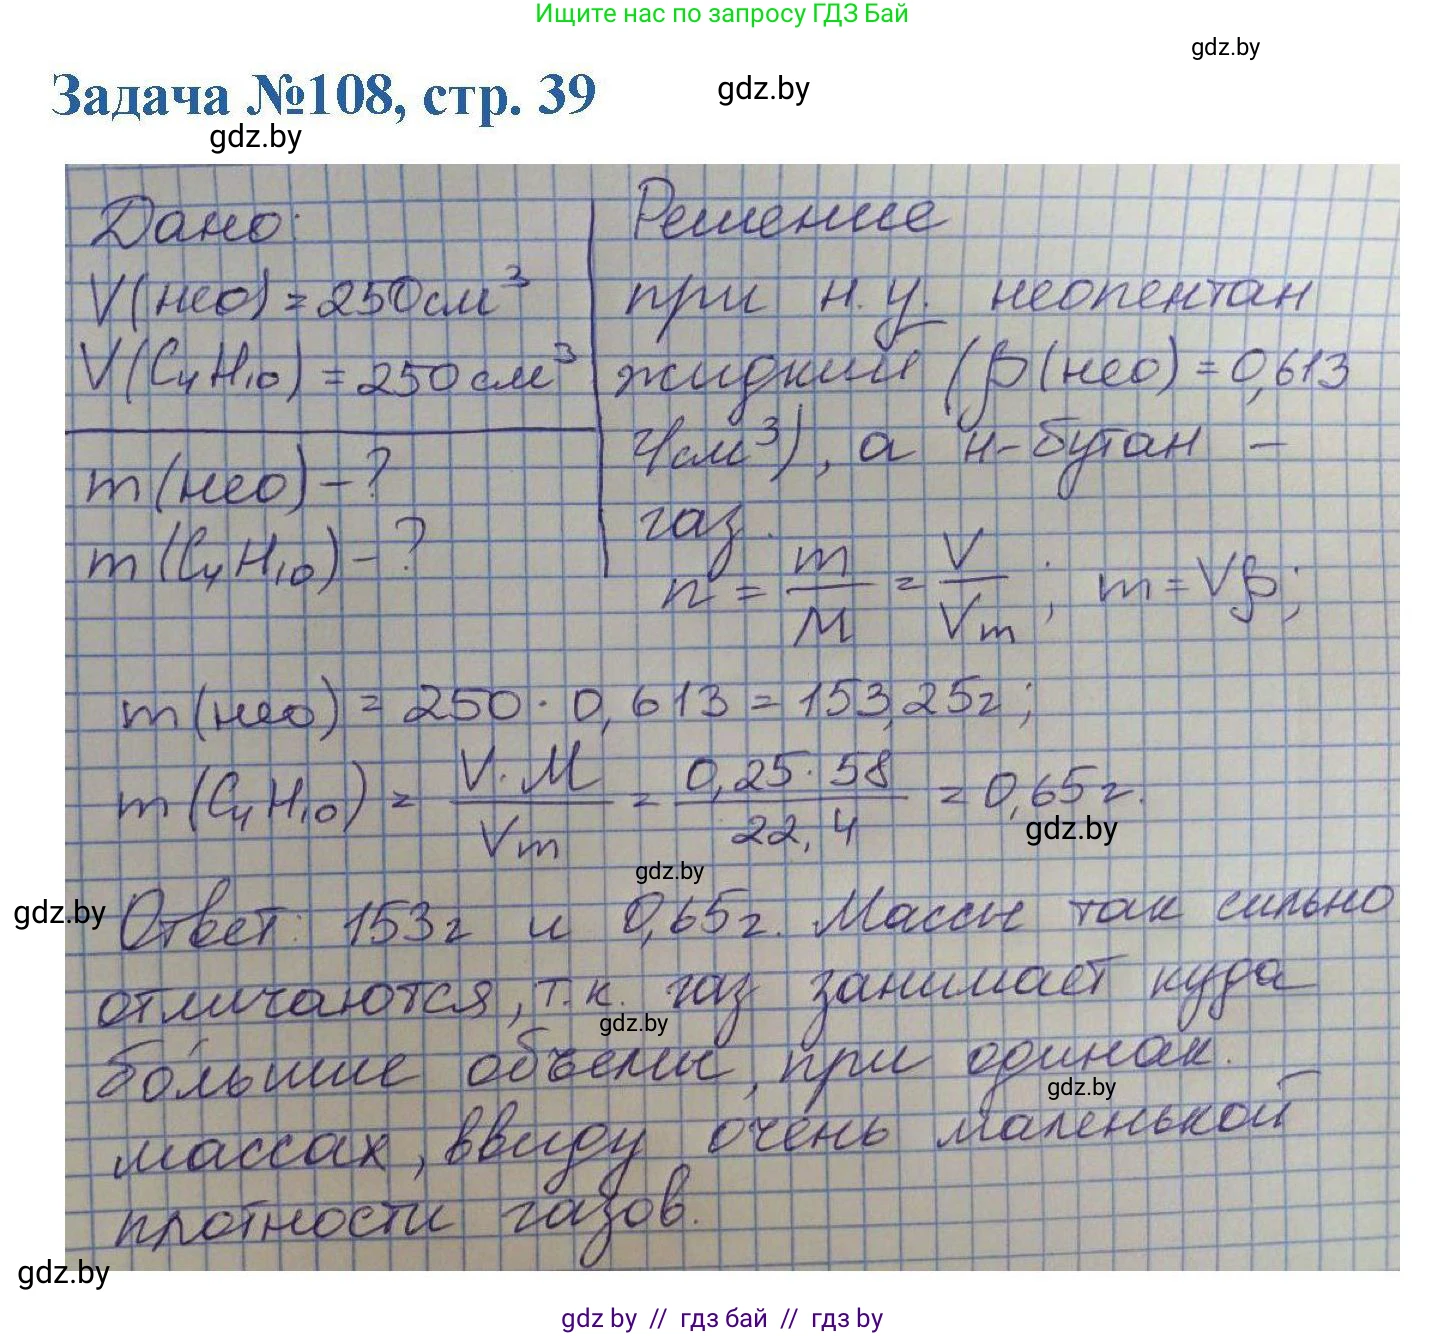 Ищите нас по запросу ГДЗ Бай
gdz.by
Задача №108, стр. 39
gdz.by
gdz.by
Дано:
V(нео) = 250см³
V(C₄H₁₀) = 250см³
m(нео) - ?
m(C₄H₁₀) - ?
Решение
при н.у. неопентан
жидкий (ρ(нео) = 0,613
г/см³), а н-бутан -
газ.
n = m/M = V/Vm; m = Vρ;
m(нео) = 250 · 0,613 = 153,25г;
m(C₄H₁₀) = V·M/Vm = 0,25·58/22,4 = 0,65г.
gdz.by
gdz.by
gdz.by
Ответ: 153г и 0,65г. Массы так сильно
отличаются, т.к. газ занимает куда
gdz.by
бо́льшие объемы, при одинак.
gdz.by
массах, ввиду очень маленькой
плотности газов.
gdz.by
gdz by // гдз бай // гдз by